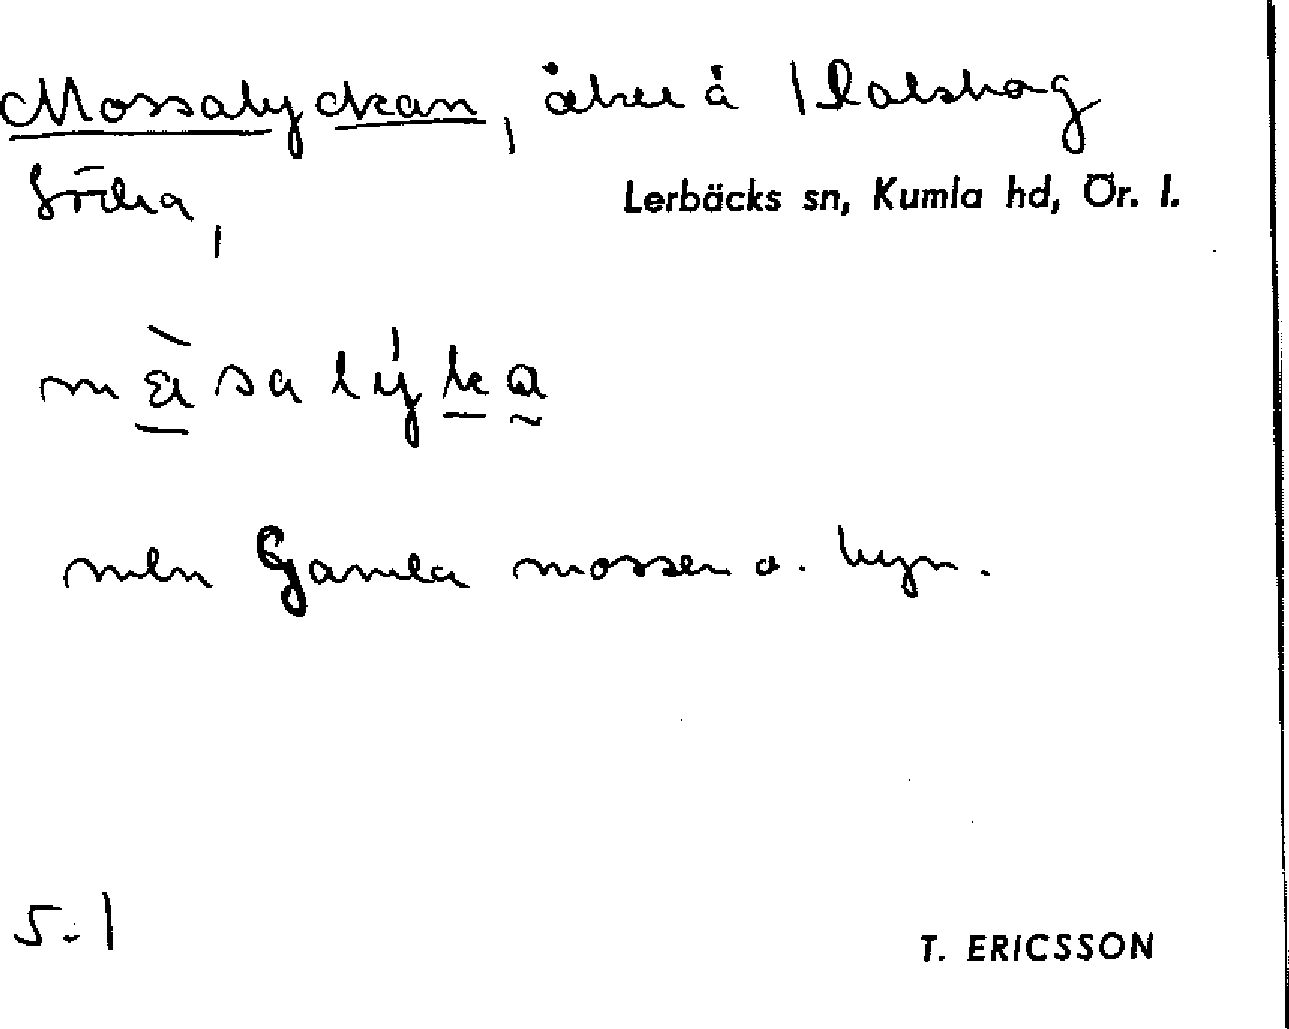 Mossalyckan, åker å Rolshag
Södra,
Lerbäcks sn, Kumla hd, Ör. l.
mln Gamla mossen o. byn.
5.1
T. ERICSSON